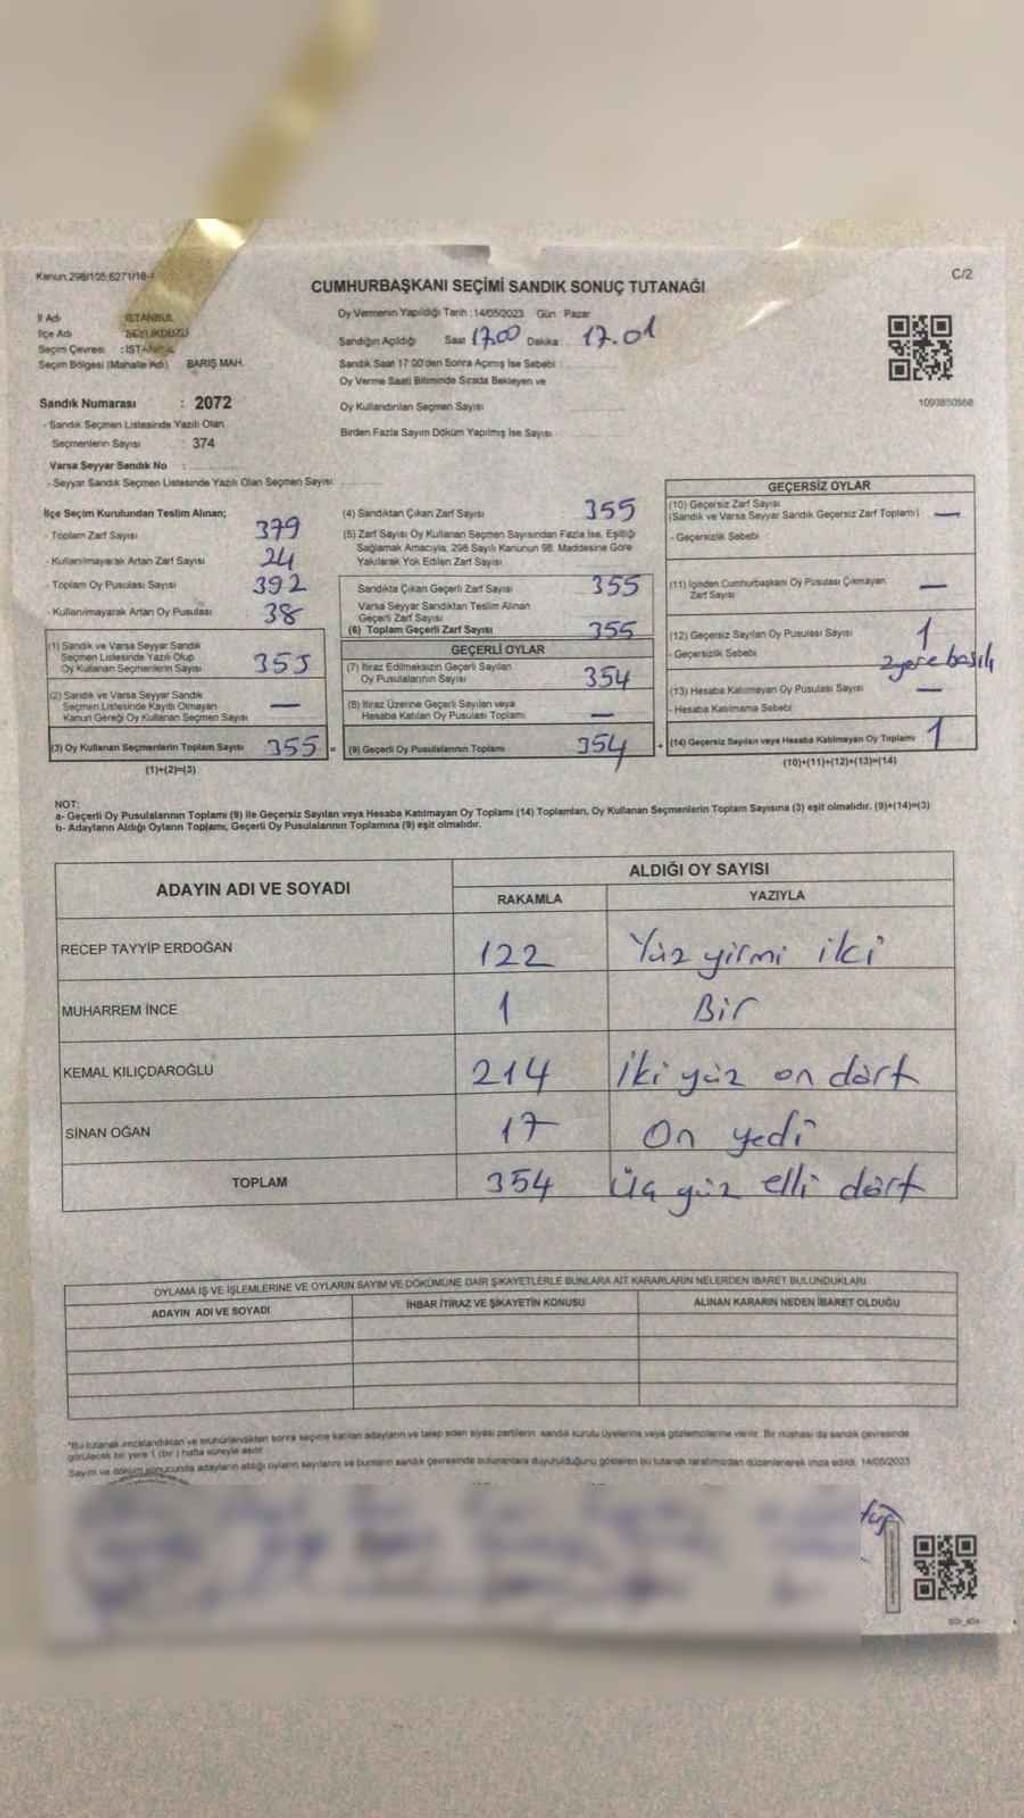 Kanun.298/105.6271/18-4
C/2
CUMHURBAŞKANI SEÇİMİ SANDIK SONUÇ TUTANAĞI
İl Adı İSTANBUL
İlçe Adı BEYLİKDÜZÜ
Seçim Çevresi : İSTANBUL
Seçim Bölgesi (Mahalle Adı) BARIŞ MAH.
Oy Vermenin Yapıldığı Tarih : 14/05/2023 Gün Pazar
Sandığın Açıldığı Saat 17.00 Dakika 17.01
Sandık Saat 17:00'den Sonra Açımış İse Sebebi
Oy Verme Saati Bitiminde Sırada Bekleyen ve
Oy Kullandırılan Seçmen Sayısı
Birden Fazla Sayım Döküm Yapılmış İse Sayısı
Sandık Numarası : 2072
- Sandık Seçmen Listesinde Yazılı Olan
Seçmenlerin Sayısı 374
Varsa Seyyar Sandık No :
- Seyyar Sandık Seçmen Listesinde Yazılı Olan Seçmen Sayısı
İlçe Seçim Kurulundan Teslim Alınan;
- Toplam Zarf Sayısı 379
- Kullanılmayarak Artan Zarf Sayısı 24
- Toplam Oy Pusulası Sayısı 392
- Kullanılmayarak Artan Oy Pusulası 38
(1) Sandık ve Varsa Seyyar Sandık
Seçmen Listesinde Yazılı Olup
Oy Kullanan Seçmenlerin Sayısı 355
(2) Sandık ve Varsa Seyyar Sandık
Seçmen Listesinde Kayıtlı Olmayan
Kanun Gereği Oy Kullanan Seçmen Sayısı —
(3) Oy Kullanan Seçmenlerin Toplam Sayısı 355 =
(1)+(2)=(3)
(4) Sandıktan Çıkan Zarf Sayısı 355
(5) Zarf Sayısı Oy Kullanan Seçmen Sayısından Fazla İse, Eşitliği
Sağlamak Amacıyla, 298 Sayılı Kanunun 98. Maddesine Göre
Yakılarak Yok Edilen Zarf Sayısı
Sandıkta Çıkan Geçerli Zarf Sayısı 355
Varsa Seyyar Sandıktan Teslim Alınan
Geçerli Zarf Sayısı
(6) Toplam Geçerli Zarf Sayısı 355
GEÇERLİ OYLAR
(7) İtiraz Edilmeksizin Geçerli Sayılan
Oy Pusulalarının Sayısı 354
(8) İtiraz Üzerine Geçerli Sayılan veya
Hesaba Katılan Oy Pusulası Toplamı —
(9) Geçerli Oy Pusulalarının Toplamı 354 +
GEÇERSİZ OYLAR
(10) Geçersiz Zarf Sayısı
(Sandık ve Varsa Seyyar Sandık Geçersiz Zarf Toplamı) —
- Geçersizlik Sebebi
(11) İçinden Cumhurbaşkanı Oy Pusulası Çıkmayan
Zarf Sayısı —
(12) Geçersiz Sayılan Oy Pusulası Sayısı 1
- Geçersizlik Sebebi 2 yere basılı
(13) Hesaba Katılmayan Oy Pusulası Sayısı —
- Hesaba Katılmama Sebebi
(14) Geçersiz Sayılan veya Hesaba Katılmayan Oy Toplamı 1
(10)+(11)+(12)+(13)=(14)
NOT:
a- Geçerli Oy Pusulalarının Toplamı (9) ile Geçersiz Sayılan veya Hesaba Katılmayan Oy Toplamı (14) Toplamları, Oy Kullanan Seçmenlerin Toplam Sayısına (3) eşit olmalıdır. (9)+(14)=(3)
b- Adayların Aldığı Oyların Toplamı, Geçerli Oy Pusulalarının Toplamına (9) eşit olmalıdır.
ADAYIN ADI VE SOYADI
ALDIĞI OY SAYISI
RAKAMLA YAZIYLA
RECEP TAYYİP ERDOĞAN 122 Yüz yirmi iki
MUHARREM İNCE 1 Bir
KEMAL KILIÇDAROĞLU 214 İki yüz on dört
SİNAN OĞAN 17 On yedi
TOPLAM 354 Üç yüz elli dört
OYLAMA İŞ VE İŞLEMLERİNE VE OYLARIN SAYIM VE DÖKÜMÜNE DAİR ŞİKAYETLERLE BUNLARA AİT KARARLARIN NELERDEN İBARET BULUNDUKLARI
ADAYIN ADI VE SOYADI İHBAR İTİRAZ VE ŞİKAYETİN KONUSU ALINAN KARARIN NEDEN İBARET OLDUĞU
*Bu tutanak imzalandıktan ve mühürlendikten sonra seçime katılan adayların ve talep eden siyasi partilerin sandık kurulu üyelerine veya gözlemcilerine verilir. Bir nüshası da sandık çevresinde
görülecek bir yere 1 (bir) hafta süreyle asılır.
Sayım ve döküm sonucunda adayların aldığı oyların sayılarını ve bunların sandık çevresinde bulunanlara duyurulduğunu gösteren bu tutanak tarafımızdan düzenlenerek imza edildi. 14/05/2023